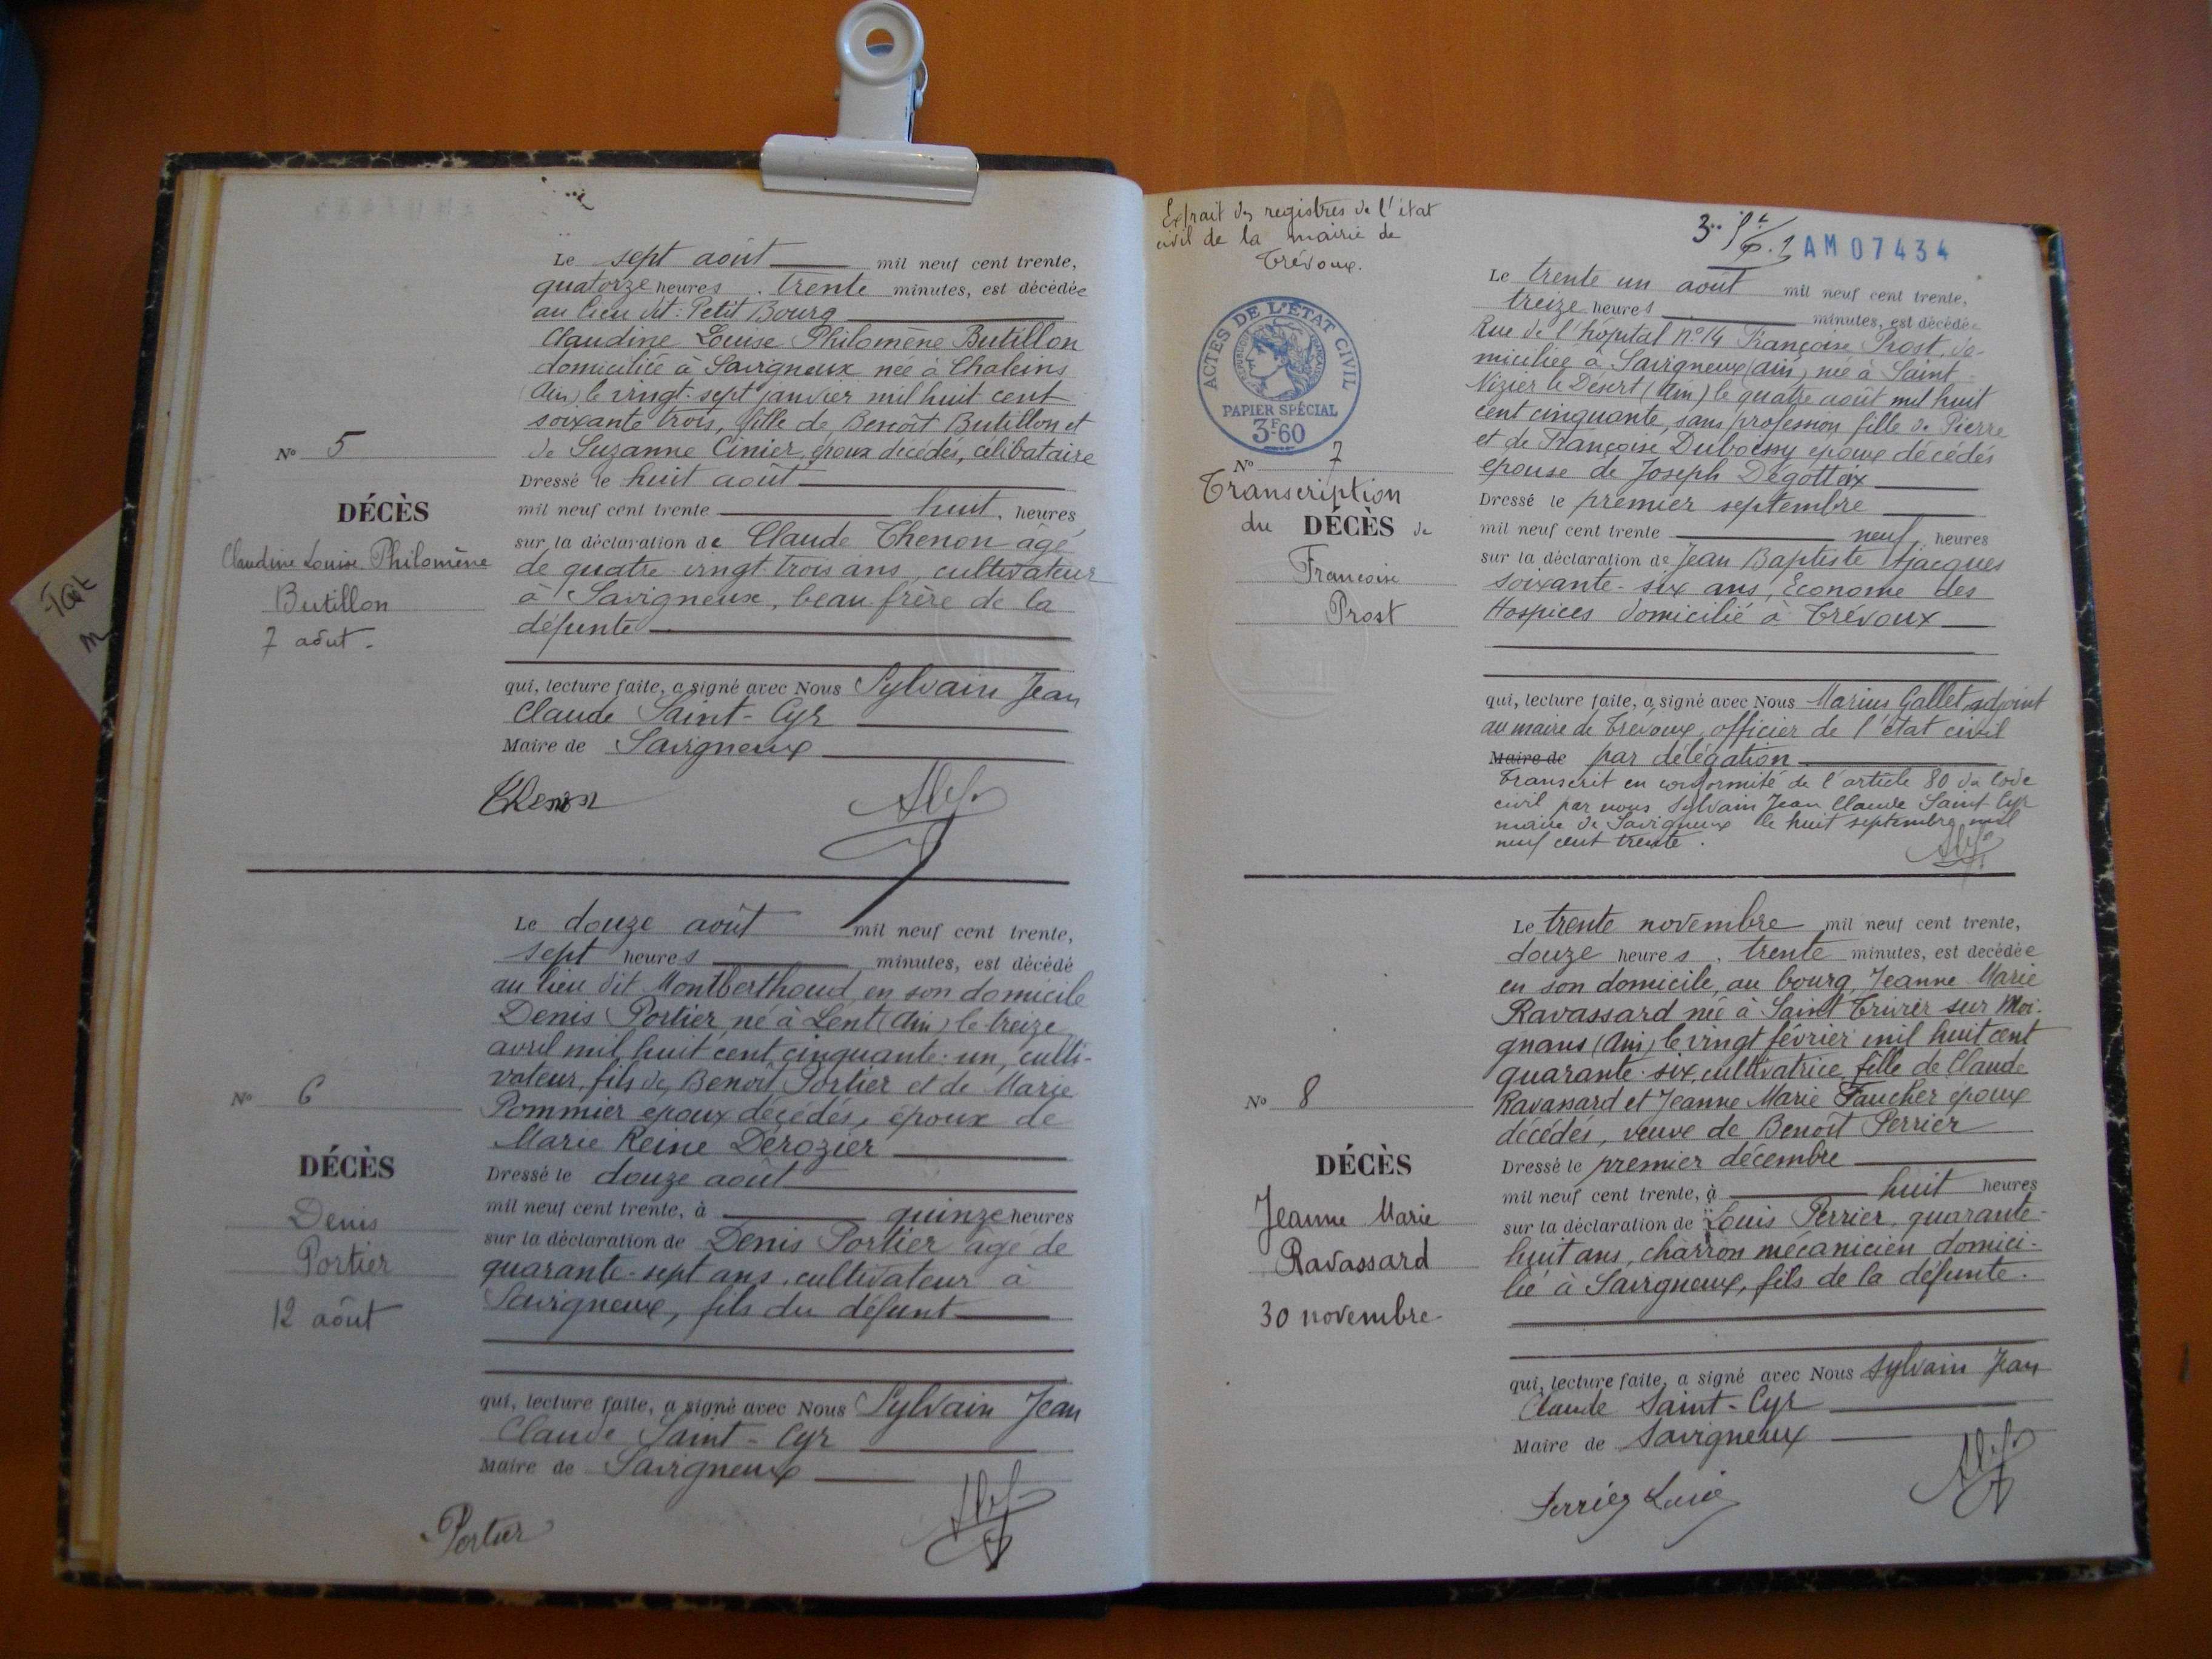 N° 5
DÉCÈS
Claudine Louise Philomène
Butillon
7 août.
Le sept août mil neuf cent trente,
quatorze heures. trente minutes, est décédée
au lieu dit: Petit Bourg
Claudine Louise Philomène Butillon
domiciliée à Savigneux née à Chaleins
(Ain) le vingt-sept janvier mil huit cent
soixante trois, fille de Benoît Butillon et
de Suzanne Cinier, époux décédés, célibataire
Dressé le huit août
mil neuf cent trente huit, heures
sur la déclaration de Claude Thenon âgé
de quatre vingt trois ans, cultivateur
à Savigneux, beau frère de la
défunte
qui, lecture faite, a signé avec Nous Sylvain Jean
Claude Saint-Cyr
Maire de Savigneux
Thenon
N° 6
DÉCÈS
Denis
Portier
12 août
Le douze août mil neuf cent trente,
sept heures minutes, est décédé
au lieu dit Montberthoud en son domicile
Denis Portier, né à Lent (Ain) le treize
avril mil huit cent cinquante-un, culti-
vateur, fils de Benoît Portier et de Marie
Pommier époux décédés, époux de
Marie Reine Derozier
Dressé le douze août
mil neuf cent trente, à quinze heures
sur la déclaration de Denis Portier âgé de
quarante-sept ans, cultivateur à
Savigneux, fils du défunt
qui, lecture faite, a signé avec Nous Sylvain Jean
Claude Saint-Cyr
Maire de Savigneux
Portier
Extrait des registres de l'état
civil de la mairie de
Trévoux.
AM 07434
ACTES DE L'ÉTAT CIVIL
RÉPUBLIQUE FRANÇAISE
PAPIER SPÉCIAL
3F60
N° 7
Transcription
du DÉCÈS de
Francoise
Prost
Le trente un août mil neuf cent trente,
treize heures minutes, est décédée
Rue de l'hôpital n° 14 Françoise Prost, do-
miciliée à Savigneux (ain) née à Saint
Nizier le Désert (Ain) le quatre août mil huit
cent cinquante, sans profession, fille de Pierre
et de Françoise Duboessy époux décédés
épouse de Joseph Dégottex
Dressé le premier septembre
mil neuf cent trente neuf, heures
sur la déclaration de Jean Baptiste Ajacques
soixante-six ans, Econome des
Hospices domicilié à Trévoux
qui, lecture faite, a signé avec Nous Marius Gallet, adjoint
au maire de Trévoux, officier de l'état civil
Maire de par délégation
Transcrit en conformité de l'article 80 du Code
civil par nous Sylvain Jean Claude Saint Cyr
maire de Savigneux le huit septembre mil
neuf cent trente.
N° 8
DÉCÈS
Jeanne Marie
Ravassard
30 novembre
Le trente novembre mil neuf cent trente,
douze heures. trente minutes, est décédée
en son domicile, au bourg, Jeanne Marie
Ravassard née à Saint Trivier sur Moi-
gnans (Ain) le vingt février mil huit cent
quarante-six, cultivatrice, fille de Claude
Ravassard et Jeanne Marie Faucher époux
décédés, veuve de Benoît Perrier
Dressé le premier décembre
mil neuf cent trente, à huit heures
sur la déclaration de Louis Perrier, quarante-
huit ans, charron mécanicien domici-
lié à Savigneux, fils de la défunte.
qui, lecture faite, a signé avec Nous Sylvain Jean
Claude Saint-Cyr
Maire de Savigneux
Perrier Louis